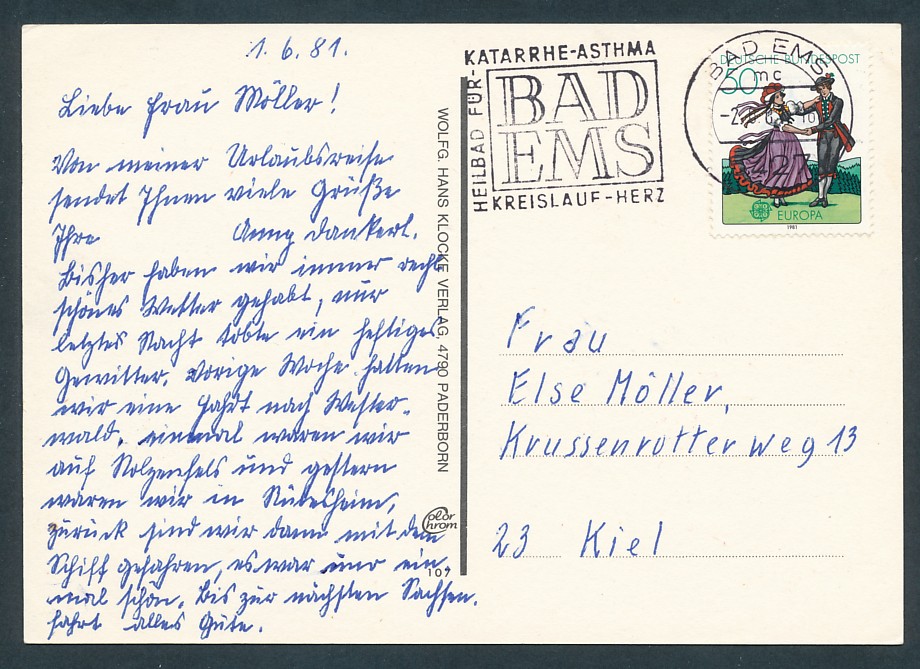 1.6.81.
Liebe Frau Möller!
Von meiner Urlaubsreise
sendet Ihnen viele Grüße
Ihre Anny Dankert.
Bisher haben wir immer recht
schönes Wetter gehabt, nur
letztes Nacht tobte ein heftiges
Gewitter. Vorige Woche hatten
wir eine Fahrt nach Wester-
wald, einmal waren wir
auf Stolzenfels und gestern
waren wir in Rüdesheim,
zurück sind wir dann mit dem
Schiff gefahren, es war ein-
mal schön. Bis zur nächsten Sachsen-
fahrt alles Gute.
WOLFG. HANS KLOCKE VERLAG, 4790 PADERBORN
Color
Chrom
107
HEILBAD FÜR-
KATARRHE-ASTHMA
BAD
EMS
KREISLAUF-HERZ
BAD EMS
mc
DEUTSCHE BUNDESPOST
50
EUROPA
1981
Frau
Else Möller,
Krussenrotter weg 13
23 Kiel